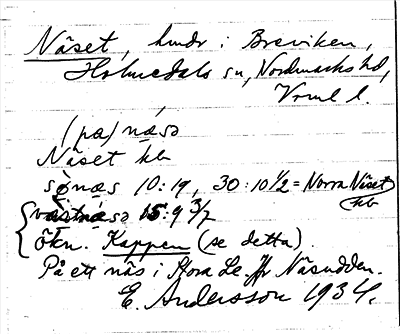 Näset, hmdr i Breviken,
Holmedals sn, Nordmarks hd,
Vrml l.
(på) næ̀sə
Näset kb
sø̀næs 10:19, 30:10 1/2 = Norra Näset
kb
5:9 3/7
ökn. Kappen (se detta).
På ett näs i Stora Le. Jfr Näsudden.
E. Andersson 1934.